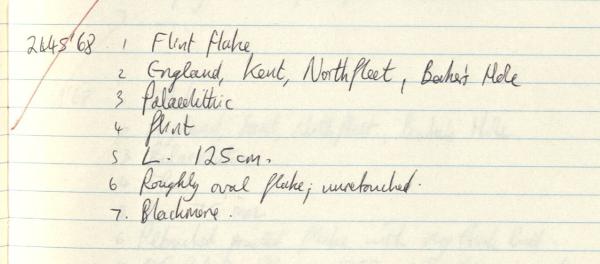 2645'68 1 Flint flake
2 England, Kent, Northfleet, Baker's Hole
3 Palaeolithic
4 flint
5 L. 125cm.
6 Roughly oval flake; unretouched.
7. Blackmore.